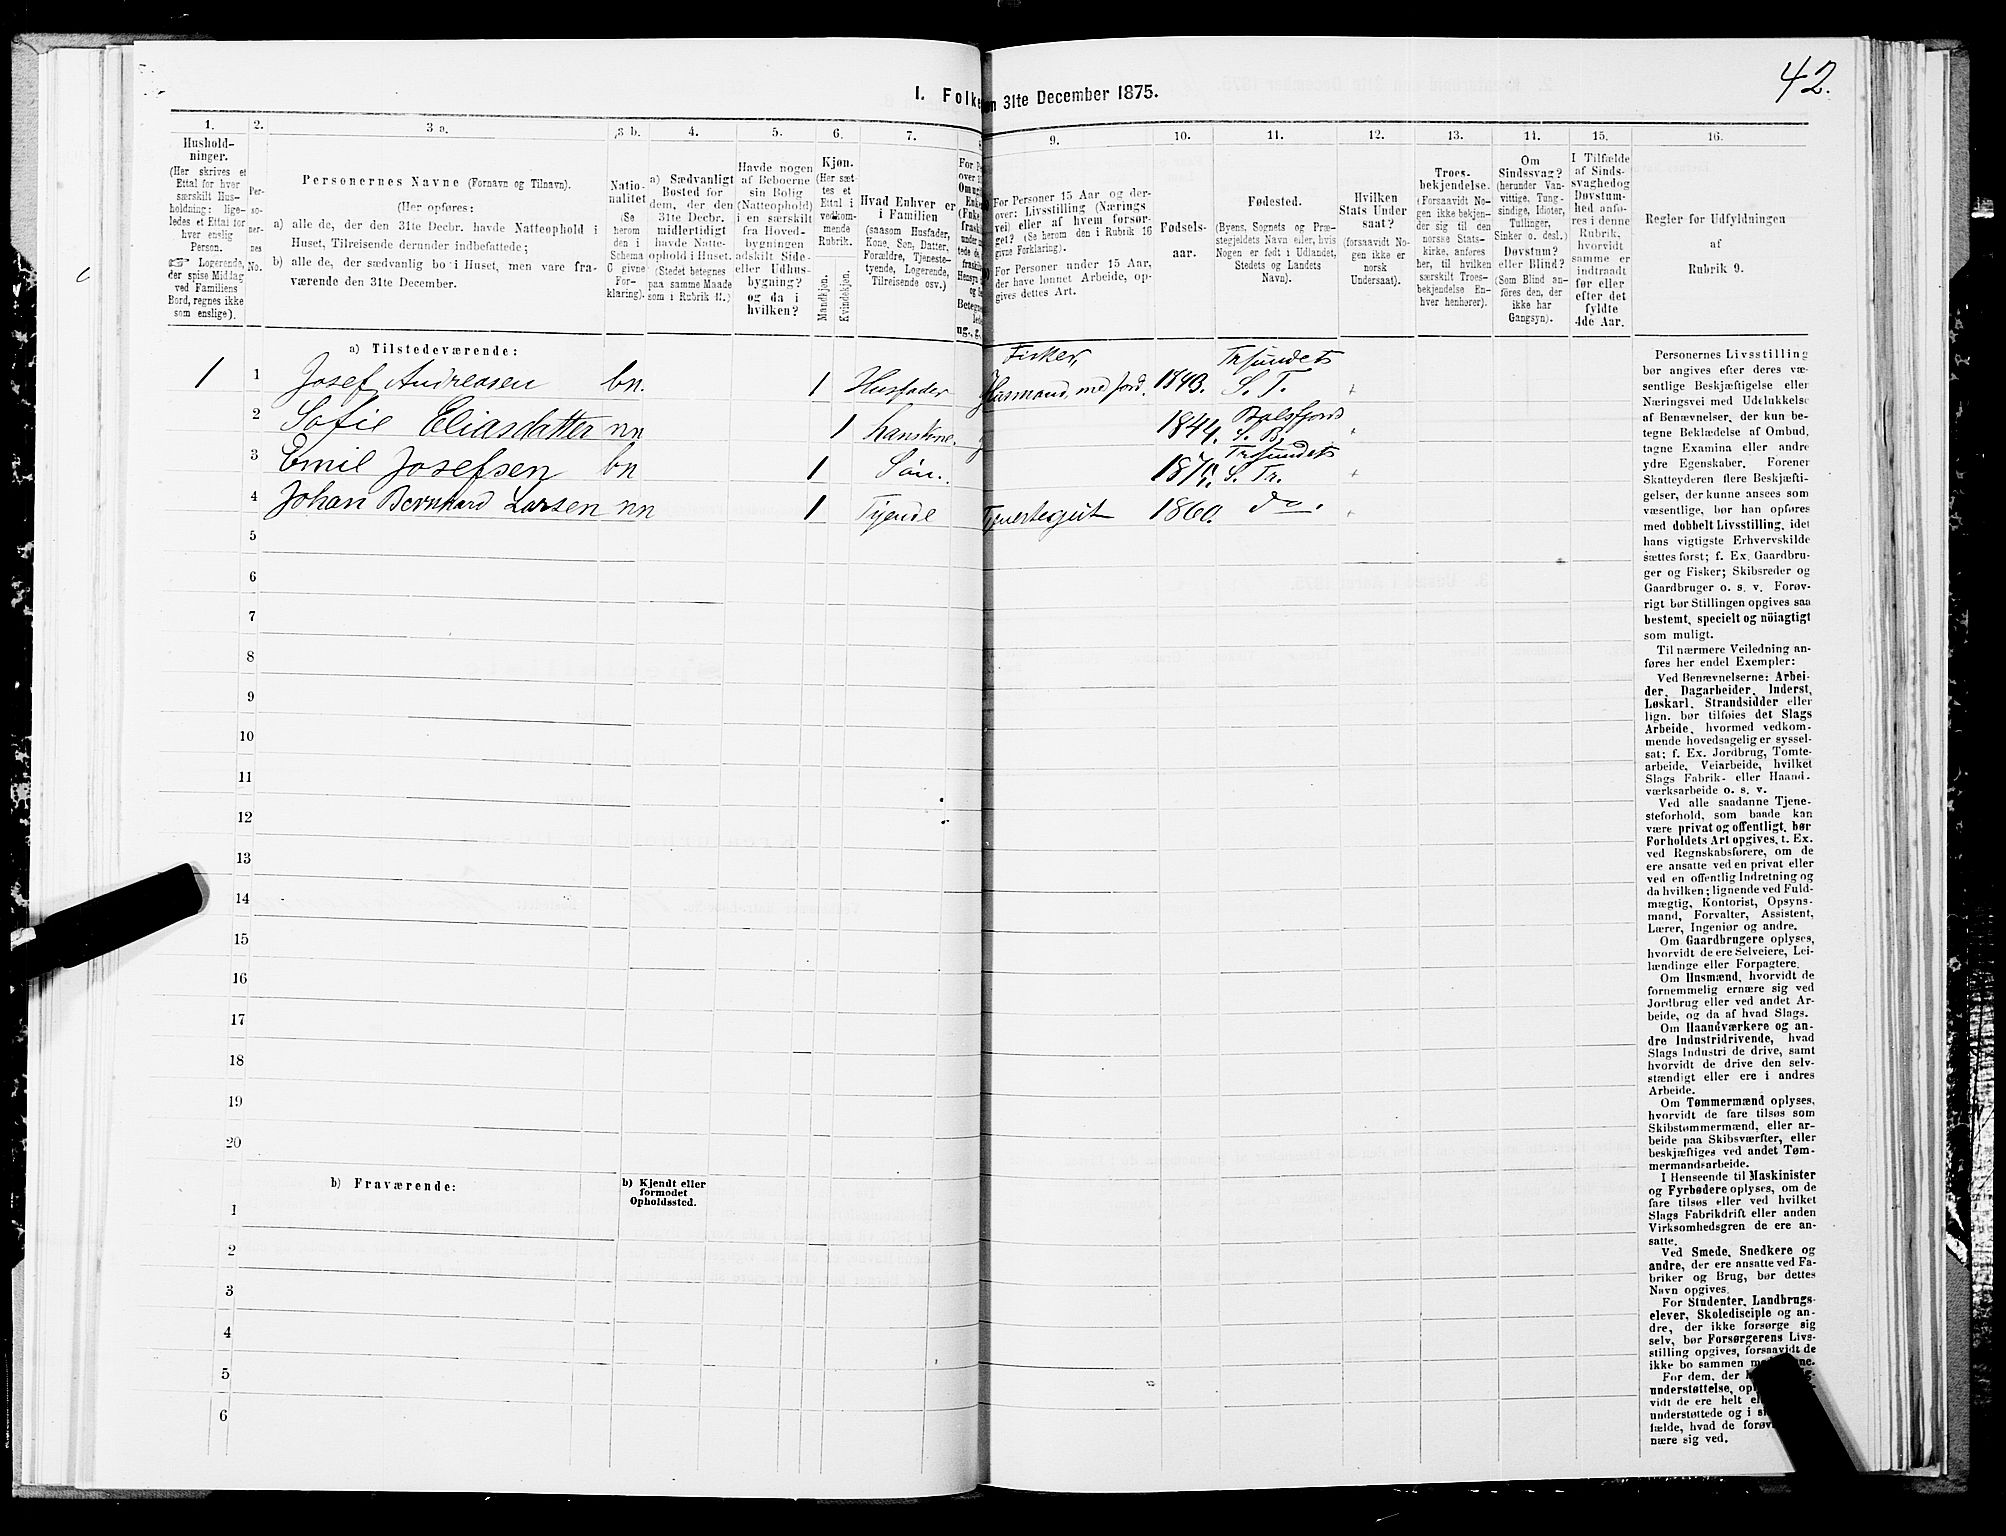 42.
I. Folke
en 31te December 1875.
1.
2.
3 a.
3 b.
4.
5.
6.
7.
9.
10.
11.
12.
13.
14.
15.
16.
Hushold-
ninger.
(Her skrives et
Ettal for hver
særskilt Hus-
holdning; lige-
ledes et Ettal for
hver enslig
Person.
Logerende,
der spise Middag
ved Familiens
Bord, regnes ikke
som enslige).
Per-
so-
ner-
nes
No.
Personernes Navne (Fornavn og Tilnavn).
(Her opføres:
a) alle de, der den 31te Decbr. havde Natteophold i
Huset, Tilreisende derunder indbefattede;
b) alle de, der sædvanlig bo i Huset, men vare fra-
værende den 31te December.
Natio-
nalitet
(Se
herom
den i
Schema
G givne
For-
klaring).
a) Sædvanligt
Bosted for
dem, der den
31te Decbr.
midlertidigt
havde Natte-
ophold i Huset.
(Stedet betegnes
paa samme Maade
som i Rubrik 11.)
Havde nogen
af Beboerne
sin Bolig
(Natteophold)
i en særskilt
fra Hoved-
bygningen
adskilt Side-
eller Udhus-
bygning?
og da i
hvilken?
Kjøn.
(Her sæt-
tes et
Ettal i
vedkom-
mende
Rubrik.
Mandkjøn.
Kvindekjøn.
Hvad Enhver er
i Familien
(saasom Husfader,
Kone, Søn, Datter,
Forældre, Tjeneste-
tyende, Logerende,
Tilreisende osv.)
For Personer 15 Aar og der-
over: Livsstilling (Nærings
vei) eller af hvem forsør-
get? (Se herom i Rubrik 16
givne Forklaring).
For Personer under 15 Aar,
der have lønnet Arbeide, op-
gives dettes Art.
Fødsels-
aar.
Fødested.
(Byens, Sognets og Præ-
stegjeldets Navn eller, hvis
Nogen er født i Udlandet,
Stedets og Landets
Navn).
Hvilken
Stats Under
saat?
(forsaavidt No-
gen ikke er
norsk
Undersaat).
Troes-
bekjendelse.
(Forsaavidt No-
gen ikke bekjen-
der sig til den
norske Stats-
kirke, anføres
her, til hvilken
særskilt Troes-
bekjendelse En-
hver henhører).
Om
Sindssvag?
(herunder Van-
vittige, Tung-
sindige, Idioter,
Tullinger,
Sinker o. desl.)
Døvstum?
eller Blind?
(Som Blind an-
føres den, der
ikke har
Gangsyn).
I Tilfælde
af Sinds-
svaghedog
Døvstum-
hed anfø-
res i denne
Rubrik,
hvorvidt
samme er
indtraadt
før eller
efter det
fyldte
4de Aar.
Regler før Udfyldningen
af
Rubrik 9.
a) Tilstedeværende:
1 1 Josef Andreasen bn. 1 Husfader Fisker, Husmand med Jord. 1843. Trsundets S. T. +
2 Sofie Eliasdatter nn 1 hans Kone. g 1844. Balsfjords S. B. +
3 Emil Josefsen bn 1 Søn. Trsundets S. Tr. +
4 Johan Bernhard Larsen nn 1 Tjende 1860. do. +
5
6
7
8
9
10
11
12
13
14
15
16
17
18
19
20
b) Fraværende:
b) Kjendt eller
formodet
Opholdssted.
1
2
3
4
5
6
Personernes Livsstilling
bør angives efter deres væ-
sentlige Beskjæftigelse eller
Næringsvei med Udelukkelse
af Benævnelser, der kun be-
tegne Beklædelse af Ombud,
tagne Examina eller andre
ydre Egenskaber. Forener
Skatteyderen flere Beskjæfti-
gelser, der kunne ansees som
væsentlige, bør han opføres
med dobbelt Livsstilling, idet
hans vigtigste Erhvervskilde
sættes først; f. Ex. Gaardbru-
ger og Fisker; Skibsreder og
Gaardbruger o. s. v. Forøv-
rigt bør Stillingen opgives saa
bestemt, specielt og nöiagtigt
som muligt.
Til nærmere Veiledning an-
føres her endel Exempler:
Ved Benævnelserne: Arbei-
der, Dagarbeider, Inderst,
Løskarl, Strandsidder eller
lign. bør tilføies det Slags
Arbeide, hvormed vedkom-
mende hovedsagelig er syssel-
sat; f. Ex. Jordbrug, Tomte-
arbeide, Veiarbeide, hvilket
Slags Fabrik- eller Haand-
værksarbeide o. s. v.
Ved alle saadanne Tjene-
steforhold, som baade kan
være privat og offentligt, bør
Forholdets Art opgives, t. Ex.
ved Regnskabsførere, om de
ere ansatte ved en privat eller
ved en offentlig Indretning og
da hvilken; lignende ved Fuld-
mægtig, Kontorist, Opsyns-
mand, Forvalter, Assistent,
Lærer, Ingeniør og andre.
Om Gaardbrugere oplyses,
hvorvidt de ere Selveiere, Lei-
lændinge eller Forpagtere.
Om Husmænd, hvorvidt de
fornemmelig ernære sig ved
Jordbrug eller ved andet Ar-
beide, og da af hvad Slags.
Om Haandværkere og an-
dre Industridrivende, hvad
Slags Industri de drive, samt
hvorvidt de drive den selv-
stændigt eller ere i andres
Arbeide.
Om Tømmermænd oplyses,
hvorvidt de fare tilsøs som
Skibstømmermænd, eller ar-
beide paa Skibsværfter, eller
beskjæftiges ved andet Tøm-
mermandsarbeide.
I Henseende til Maskinister
og Fyrbødere oplyses, om de
fare tilsøs eller ved hvilket
Slags Fabrikdrift eller anden
Virksomhedsgren de ere an-
satte.
Ved Smede, Snedkere og
andre, der ere ansatte ved Fa-
briker og Brug, bør dettes
Navn opgives.
For Studenter, Landbrugs-
elever, Skoledisciple og an-
dre, der ikke forsørge sig
selv, bør Forsørgerens Livs-
stilling opgives, forsaavidt de
ikke bo sammen
For dem, der
understøttelse,
vidt de ere helt
understøttede og i
fælde, hvad de
nære sig ved.